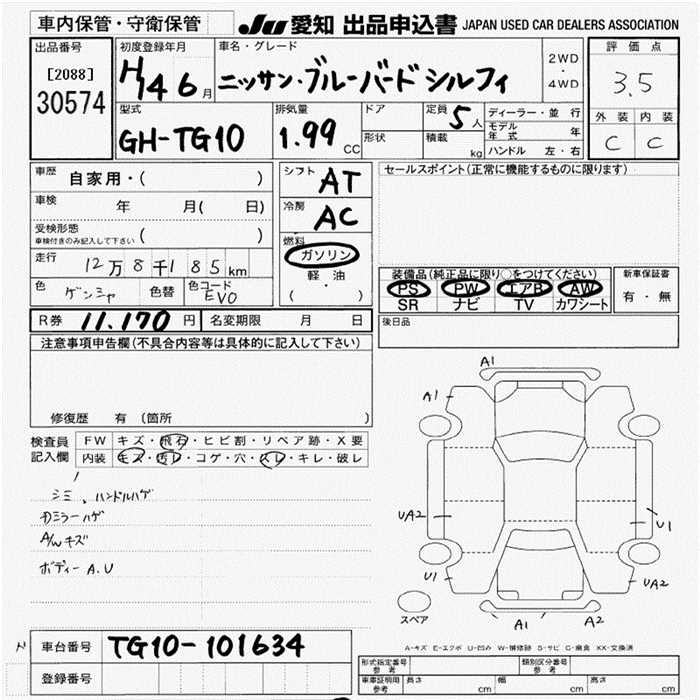 車内保管・守衛保管
JU 愛知 出品申込書 JAPAN USED CAR DEALERS ASSOCIATION
出品番号
[2088]
30574
初度登録年月
H14 6月
車名・グレード
ニッサン・ブルーバード シルフィ
2WD
・
4WD
評価点
3.5
外装 内装
C C
型式
GH-TG10
排気量
1.99 CC
ドア
形状
定員 5人
積載 kg
ディーラー・並行
モデル年式 年
ハンドル 左・右
車歴 自家用・( )
車検 年 月( 日)
受検形態
車検付きのみ記入して下さい ( )
走行 12万8千185km
色 ゲンシャ 色替 色コード EV0
シフト AT
冷房 AC
燃料
ガソリン
軽・油
( ・ )
セールスポイント(正常に機能するものに限ります)
装備品(純正品に限り○をつけてください)
PS PW エアB AW
SR ナビ TV カワシート
新車保証書
有・無
R券 11.170円 名変期限 月 日
後日品
注意事項申告欄(不具合内容等は具体的に記入して下さい)
修復歴 有 (箇所 )
検査員記入欄
FW キズ・飛石・ヒビ割・リペア跡・X要
内装 キズ・汚レ・コゲ・穴・スレ・キレ・破レ
シミ、ハンドルハゲ
カミラーハゲ
A/Wキズ
ボディー A.U
A1
A1
UA2
U1
U1
UA2
スペア
A1
A2
A-キズ E-エクボ U-凹み W-補修跡 S-サビ C-腐食 XX-交換済
車台番号 TG10-101634
登録番号
形式指定番号
参考
類別区分番号
参考
車庫証明用
参考
長さ cm 幅 cm 高さ cm